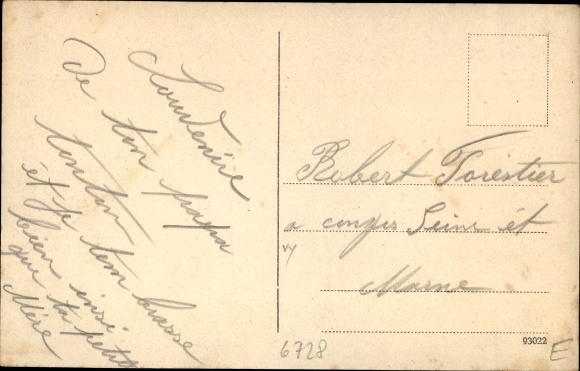 Souvenire
De ton papa
tonton
et je tembrasse
bien insi
que ta petite
Mère
Robert Forestier
a congis Seine et
Marne
6728
93022
E